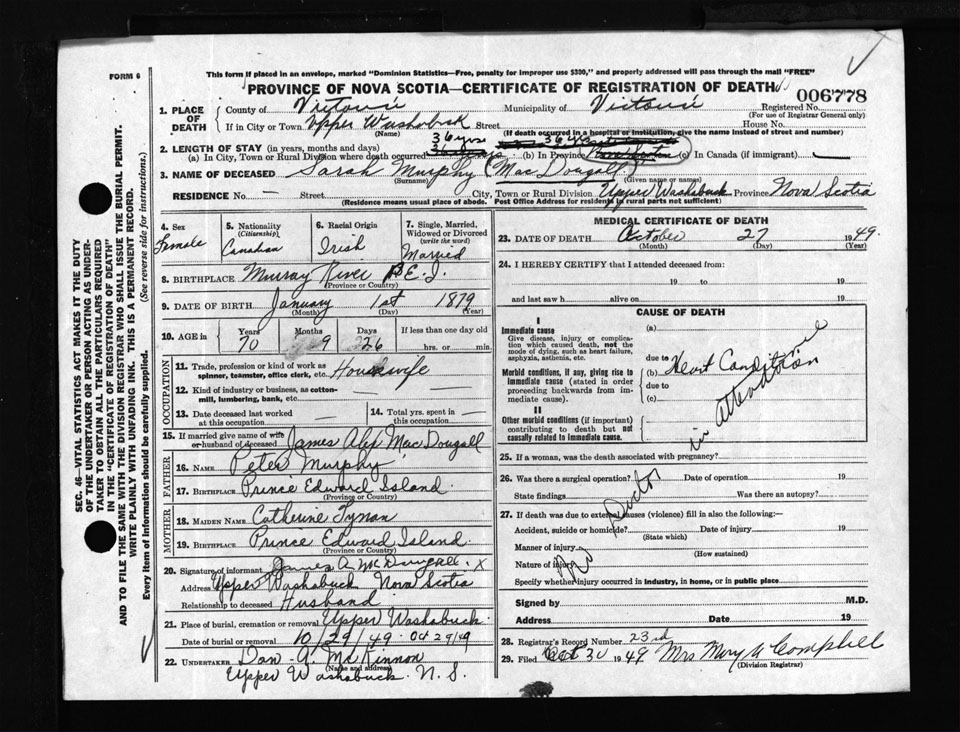 This form if placed in an envelope, marked "Dominion Statistics—Free, penalty for improper use $300," and properly addressed will pass through the mail "FREE"
FORM 6
PROVINCE OF NOVA SCOTIA—CERTIFICATE OF REGISTRATION OF DEATH
006778
1. PLACE OF DEATH
County of Victoria Municipality of Victoria Registered No.
(For use of Registrar General only)
If in City or Town Upper Washabuck Street House No.
(Name) (If death occurred in a hospital or institution, give the name instead of street and number)
2. LENGTH OF STAY (in years, months and days) 36 yrs
(a) In City, Town or Rural Division where death occurred (b) In Province (c) In Canada (if immigrant) —
3. NAME OF DECEASED Sarah Murphy (MacDougall)
(Surname) (Given name or names)
RESIDENCE No. — Street City, Town or Rural Division Upper Washabuck Province Nova Scotia
(Residence means usual place of abode. Post Office Address for residents in rural parts not sufficient)
4. Sex
Female
5. Nationality
(Citizenship)
Canadian
6. Racial Origin
Irish
7. Single, Married, Widowed or Divorced
(write the word)
Married
8. BIRTHPLACE Murray River P.E.I.
(Province or Country)
9. DATE OF BIRTH January 1st 1879
(Month) (Day) (Year)
10. AGE in Years Months Days If less than one day old
70 9 26 hrs. or min.
OCCUPATION
11. Trade, profession or kind of work as spinner, teamster, office clerk, etc. Housewife
12. Kind of industry or business, as cotton-mill, lumbering, bank, etc.
13. Date deceased last worked at this occupation —
14. Total yrs. spent in this occupation —
15. If married give name of wife or husband of deceased James Alex MacDougall
FATHER
16. NAME Peter Murphy
17. BIRTHPLACE Prince Edward Island
(Province or Country)
MOTHER
18. MAIDEN NAME Catherine Tynan
19. BIRTHPLACE Prince Edward Island
(Province or Country)
20. Signature of informant James A McDougall X
Address Upper Washabuck Nova Scotia
Relationship to deceased Husband
21. Place of burial, cremation or removal Upper Washabuck
Date of burial or removal 10/29/49 Oct 29/49
22. UNDERTAKER Dan A. McKinnon
(Name and address)
Upper Washabuck N.S.
MEDICAL CERTIFICATE OF DEATH
23. DATE OF DEATH October 27 1949
(Month) (Day) (Year)
24. I HEREBY CERTIFY that I attended deceased from:
19 to 19
and last saw h alive on 19
CAUSE OF DEATH
I
Immediate cause (a)
Give disease, injury or complication which caused death, not the mode of dying, such as heart failure, asphyxia, asthenia, etc.
due to
Morbid conditions, if any, giving rise to immediate cause (stated in order proceeding backwards from immediate cause).
(b) Heart Condition
due to
(c)
II
Other morbid conditions (if important) contributing to death but not causally related to immediate cause.
No Doctor in attendance
25. If a woman, was the death associated with pregnancy?
26. Was there a surgical operation? Date of operation 19
State findings Was there an autopsy?
27. If death was due to external causes (violence) fill in also the following:—
Accident, suicide or homicide? Date of injury 19
(State which)
Manner of injury
(How sustained)
Nature of injury
Specify whether injury occurred in industry, in home, or in public place
Signed by M.D.
Address Date 19
28. Registrar's Record Number 23rd
29. Filed Oct 30 1949 Mrs Mary W Campbell
(Division Registrar)
SEC. 46—VITAL STATISTICS ACT MAKES IT THE DUTY
OF THE UNDERTAKER OR PERSON ACTING AS UNDER-
TAKER TO OBTAIN ALL THE PARTICULARS REQUIRED
IN THE "CERTIFICATE OF REGISTRATION OF DEATH"
AND TO FILE THE SAME WITH THE DIVISION REGISTRAR WHO SHALL ISSUE THE BURIAL PERMIT.
WRITE PLAINLY WITH UNFADING INK. THIS IS A PERMANENT RECORD.
Every item of Information should be carefully supplied. (See reverse side for instructions.)